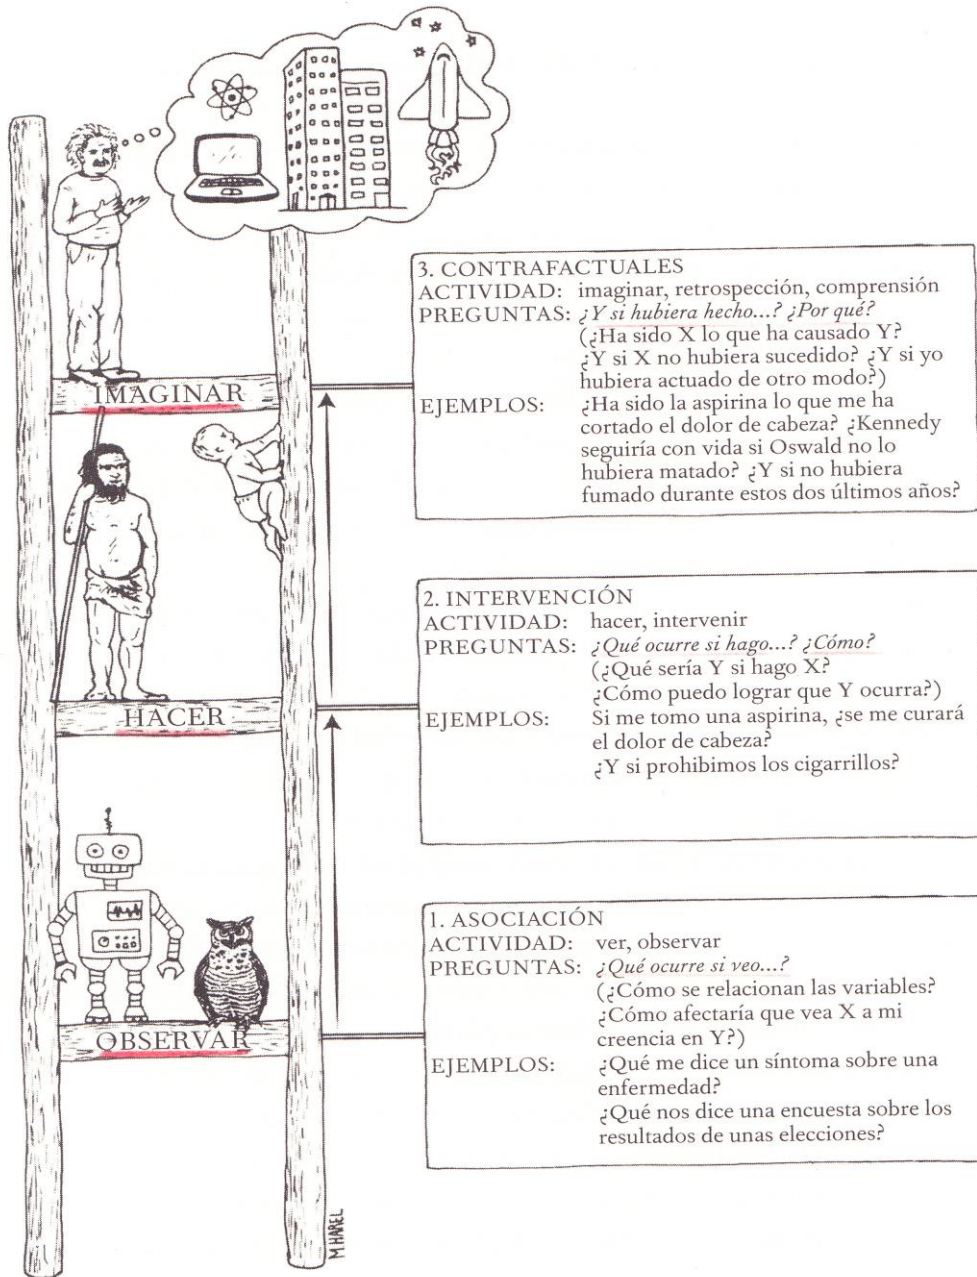 3. CONTRAFACTUALES
ACTIVIDAD: imaginar, retrospección, comprensión
PREGUNTAS: ¿Y si hubiera hecho...? ¿Por qué?
(¿Ha sido X lo que ha causado Y?
¿Y si X no hubiera sucedido? ¿Y si yo
hubiera actuado de otro modo?)
EJEMPLOS: ¿Ha sido la aspirina lo que me ha
cortado el dolor de cabeza? ¿Kennedy
seguiría con vida si Oswald no lo
hubiera matado? ¿Y si no hubiera
fumado durante estos dos últimos años?
IMAGINAR
2. INTERVENCIÓN
ACTIVIDAD: hacer, intervenir
PREGUNTAS: ¿Qué ocurre si hago...? ¿Cómo?
(¿Qué sería Y si hago X?
¿Cómo puedo lograr que Y ocurra?)
EJEMPLOS: Si me tomo una aspirina, ¿se me curará
el dolor de cabeza?
¿Y si prohibimos los cigarrillos?
HACER
1. ASOCIACIÓN
ACTIVIDAD: ver, observar
PREGUNTAS: ¿Qué ocurre si veo...?
(¿Cómo se relacionan las variables?
¿Cómo afectaría que vea X a mi
creencia en Y?)
EJEMPLOS: ¿Qué me dice un síntoma sobre una
enfermedad?
¿Qué nos dice una encuesta sobre los
resultados de unas elecciones?
OBSERVAR
M HAREL